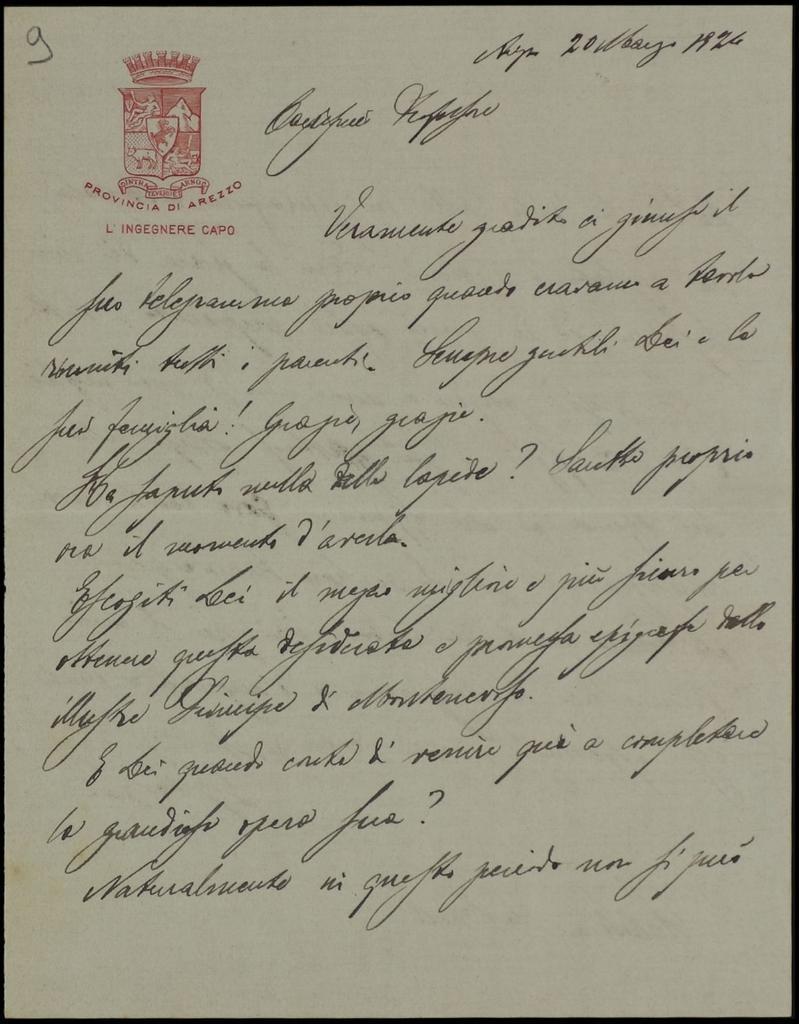 9
Arezzo 20 Marzo 1924
Carissimo Professore
INTRA TEVERIM ET ARNOS
PROVINCIA DI AREZZO
L'INGEGNERE CAPO
Veramente gradito ci giunse il
suo telegramma proprio quando eravamo a tavola
riuniti tutti i parenti. Sempre gentili Lei e la
sua famiglia! Grazie, grazie.
Ha saputo nulla della lapide? Sarebbe proprio
ora il momento d'averla.
Escogiti Lei il mezzo migliore e più sicuro per
ottenere questa desiderata e promessa epigrafe dello
illustre Principe di Montenevoso.
E Lei quando conta di venire quà a completare
la grandiosa opera sua?
Naturalmente in questo periodo non si può